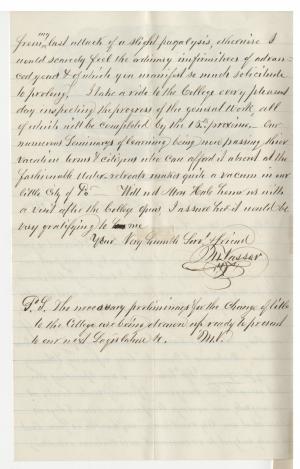 my
from last attack of a slight paralysis, otherwise I
would scarcely feel the ordinary infirmities of advan-
ced years & of which you manifest so much solicitude
to prolong. I take a ride to the College every pleasant
day inspecting the progress of the genial Work, all
of which will be completed by the 15th proximo. Our
numerous Seminarys of learning being now passing their
vacation terms & citizens who can afford it absent at the
fashionable Water retreats makes quite a vacum in our
little City of Po. Will not Mrs Hale honor us with
a visit after the College Opens, I assure her it would be
very gratifying to me
Your Very humble Servt & friend
M. Vassar
P.S. The necessary preliminarys for the Change of title
to the College are being drawn up ready to present
to our next Legislature &c. M.V.